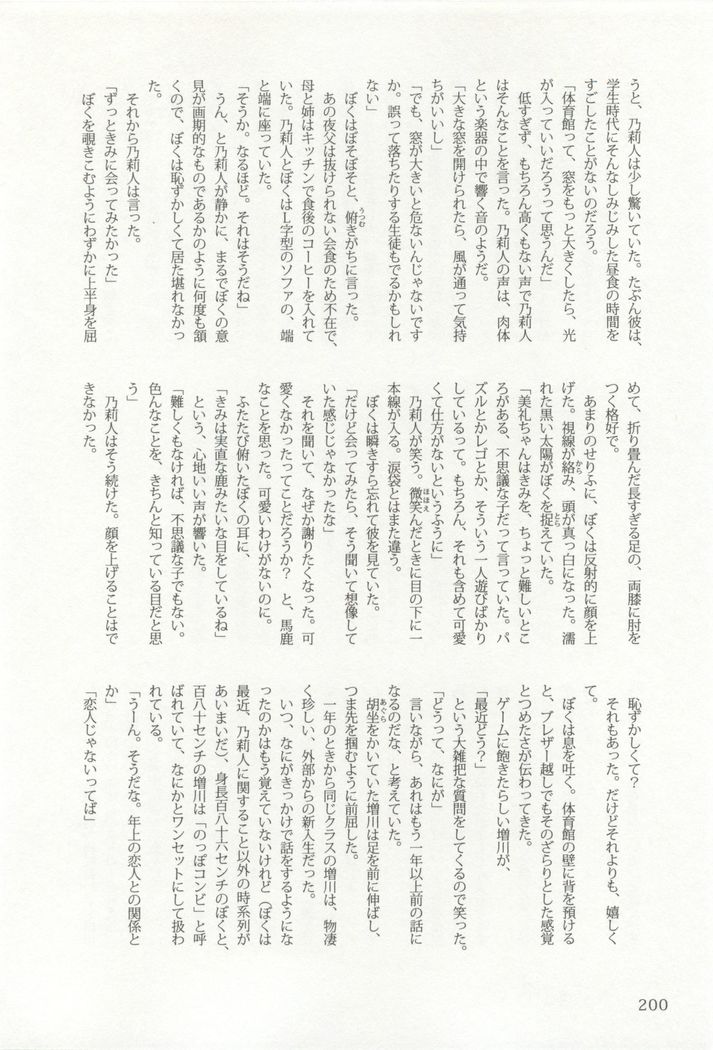 うと、乃莉人は少し驚いていた。たぶん彼は、
学生時代にそんなしみじみした昼食の時間を
すごしたことがないのだろう。
「体育館って、窓をもっと大きくしたら、光
が入っていいだろうって思うんだ」
低すぎず、もちろん高くもない声で乃莉人
はそんなことを言った。乃莉人の声は、肉体
という楽器の中で響く音のようだ。
「大きな窓を開けられたら、風が通って気持
ちがいいし」
「でも、窓が大きいと危ないんじゃないです
か。誤って落ちたりする生徒もでるかもしれ
ない」
ぼくはぼそぼそと、俯きがちに言った。
あの夜父は抜けられない会食のため不在で、
母と姉はキッチンで食後のコーヒーを入れて
いた。乃莉人とぼくはL字型のソファの、端
と端に座っていた。
「そうか。なるほど。それはそうだね」
うん、と乃莉人が静かに、まるでぼくの意
見が画期的なものであるかのように何度も頷
くので、ぼくは恥ずかしくて居た堪れなかっ
た。
それから乃莉人は言った。
「ずっときみに会ってみたかった」
ぼくを覗きこむようにわずかに上半身を屈
めて、折り畳んだ長すぎる足の、両膝に肘を
つく格好で。
あまりのせりふに、ぼくは反射的に顔を上
げた。視線が絡み、頭が真っ白になった。濡
れた黒い太陽がぼくを捉えていた。
「美礼ちゃんはきみを、ちょっと難しいとこ
ろがある、不思議な子だって言っていた。パ
ズルとかレゴとか、そういう一人遊びばかり
しているって。もちろん、それも含めて可愛
くて仕方がないというふうに」
乃莉人が笑う。微笑んだときに目の下に一
本線が入る。涙袋とはまた違う。
ぼくは瞬きすら忘れて彼を見ていた。
「だけど会ってみたら、そう聞いて想像して
いた感じじゃなかったな」
それを聞いて、なぜか謝りたくなった。可
愛くなかったってことだろうか? と、馬鹿
なことを思った。可愛いわけがないのに。
ふたたび俯いたぼくの耳に、
「きみは実直な鹿みたいな目をしているね」
という、心地いい声が響いた。
「難しくもなければ、不思議な子でもない。
色んなことを、きちんと知っている目だと思
う」
乃莉人はそう続けた。顔を上げることはで
きなかった。
恥ずかしくて?
それもあった。だけどそれよりも、嬉しく
て。
ぼくは息を吐く。体育館の壁に背を預ける
と、ブレザー越しでもそのざらりとした感覚
とつめたさが伝わってきた。
ゲームに飽きたらしい増川が、
「最近どう?」
という大雑把な質問をしてくるので笑った。
「どうって、なにが」
言いながら、あれはもう一年以上前の話に
なるのだな、と考えていた。
胡坐をかいていた増川は足を前に伸ばし、
つま先を掴むように前屈した。
一年のときから同じクラスの増川は、物凄
く珍しい、外部からの新入生だった。
いつ、なにがきっかけで話をするようにな
ったのかはもう覚えていないけれど(ぼくは
最近、乃莉人に関すること以外の時系列が
あいまいだ)、身長百八十六センチのぼくと、
百八十センチの増川は「のっぽコンビ」と呼
ばれていて、なにかとワンセットにして扱わ
れている。
「うーん。そうだな。年上の恋人との関係と
か」
「恋人じゃないってば」
200